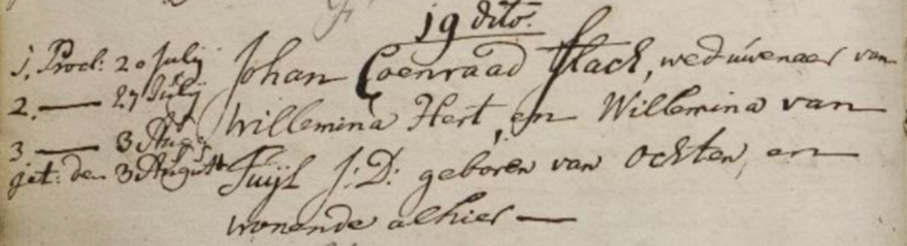 19 dito.
1. Procl: 20 Julij
2. — 27 Julij
3 — 3 Aug
get: den 3 August
Johan Coenraad Stack, weduwenaer van
Willemina Hert, en Willemina van
Tuijl J: D: geboren van Ochten, en
wonende alhier —